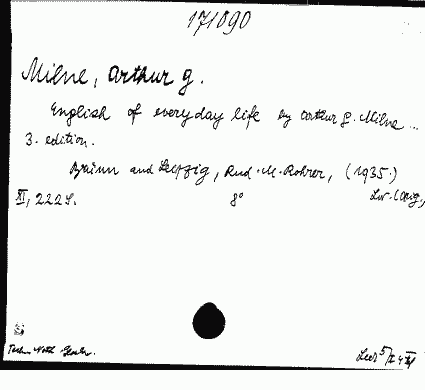 171090
Milne, Arthur G.
English of everyday life by Arthur G. Milne ...
3. edition.
Brünn and Leipzig, Rud. M. Rohrer, (1935.)
XI, 222 S. 8° Lw. (Orig,